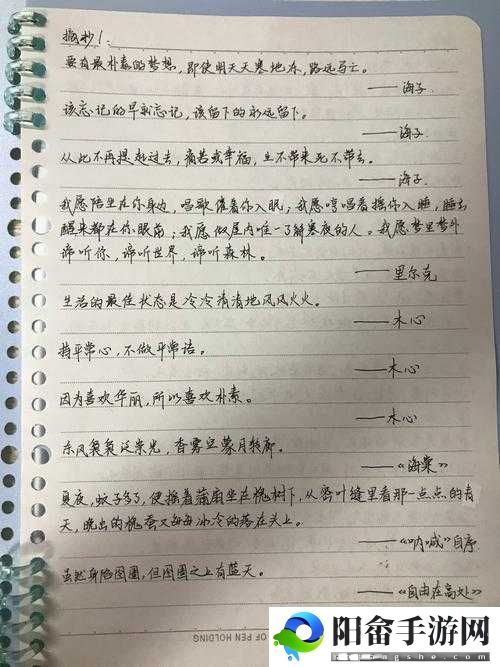 摘抄1：
要有最朴素的梦想，即使明天天寒地冻，路远马亡。
——海子
该忘记的早就忘记，该留下的永远留下。
——海子
从此不再提起过去，痛苦或幸福，生不带来死不带去。
——海子
我愿陪坐在你身边，唱歌催着你入眠；我愿哼唱着摇你入睡，睡去
醒来都在你眼前；我愿做屋内唯一了解寒夜的人。我愿梦里梦外
谛听你，谛听世界，谛听森林。
——里尔克
生活的最佳状态是冷冷清清地风风火火。
——木心
持平常心，不做平常语。
——木心
因为喜欢华丽，所以喜欢朴素。
——木心
东风袅袅泛崇光，香雾空蒙月转廊。
——《海棠》
夏夜，蚊子多了，便摇着蒲扇坐在槐树下，从密叶缝里看那一点点的青
天，晚出的槐蚕又每每冰冷的落在头上。
——《呐喊》自序
虽然身陷囹圄，但囹圄之上有蓝天。
——《自由在高处》
OF PEN HOLDING
阳畲手游网